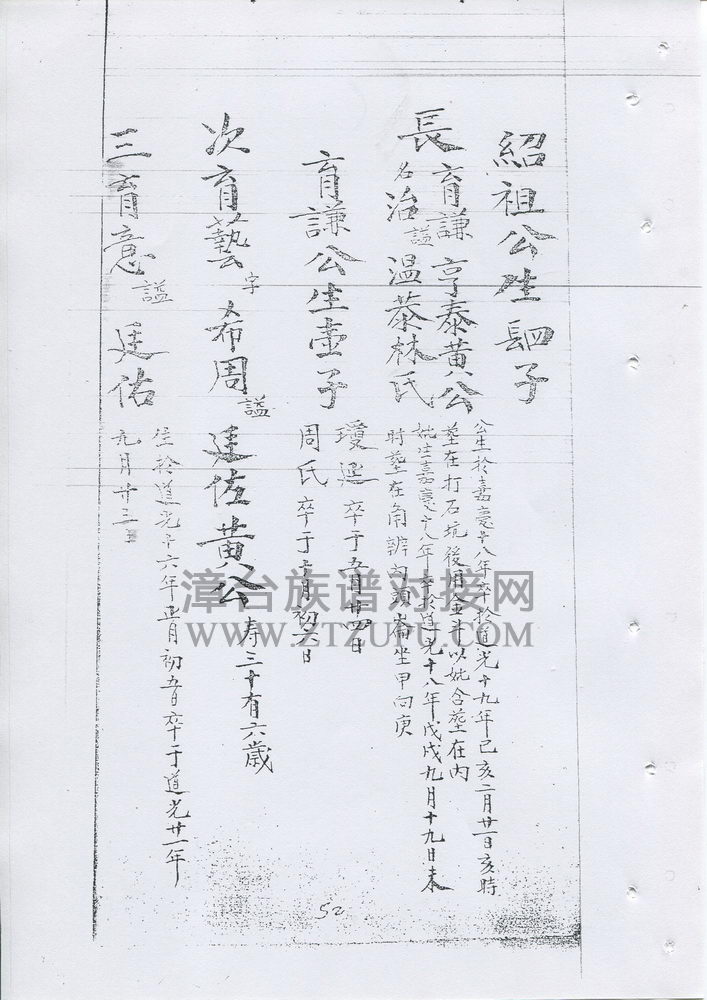 紹祖公生四子
長育謙
亨泰黃公
名治謚温恭林氏
公生於嘉慶十八年卒於道光十九年己亥二月廿一日亥時
塟在打石坑後用金斗以妣含塟在内
妣生嘉慶十八年卒於道光十八年戊戌九月十九日未
時塟在角辦內頭崙坐甲向庚
育謙公生壹子
瓊選卒于五月廿四日
周氏卒于 月初六日
次育藝字希周謚廷佐黃公
寿三十有六歲
三育意謚廷佑
生於道光十六年正月初五日卒于道光廿一年
九月廿三日
漳台族谱对接网
WWW.ZTZUPU.COM
52